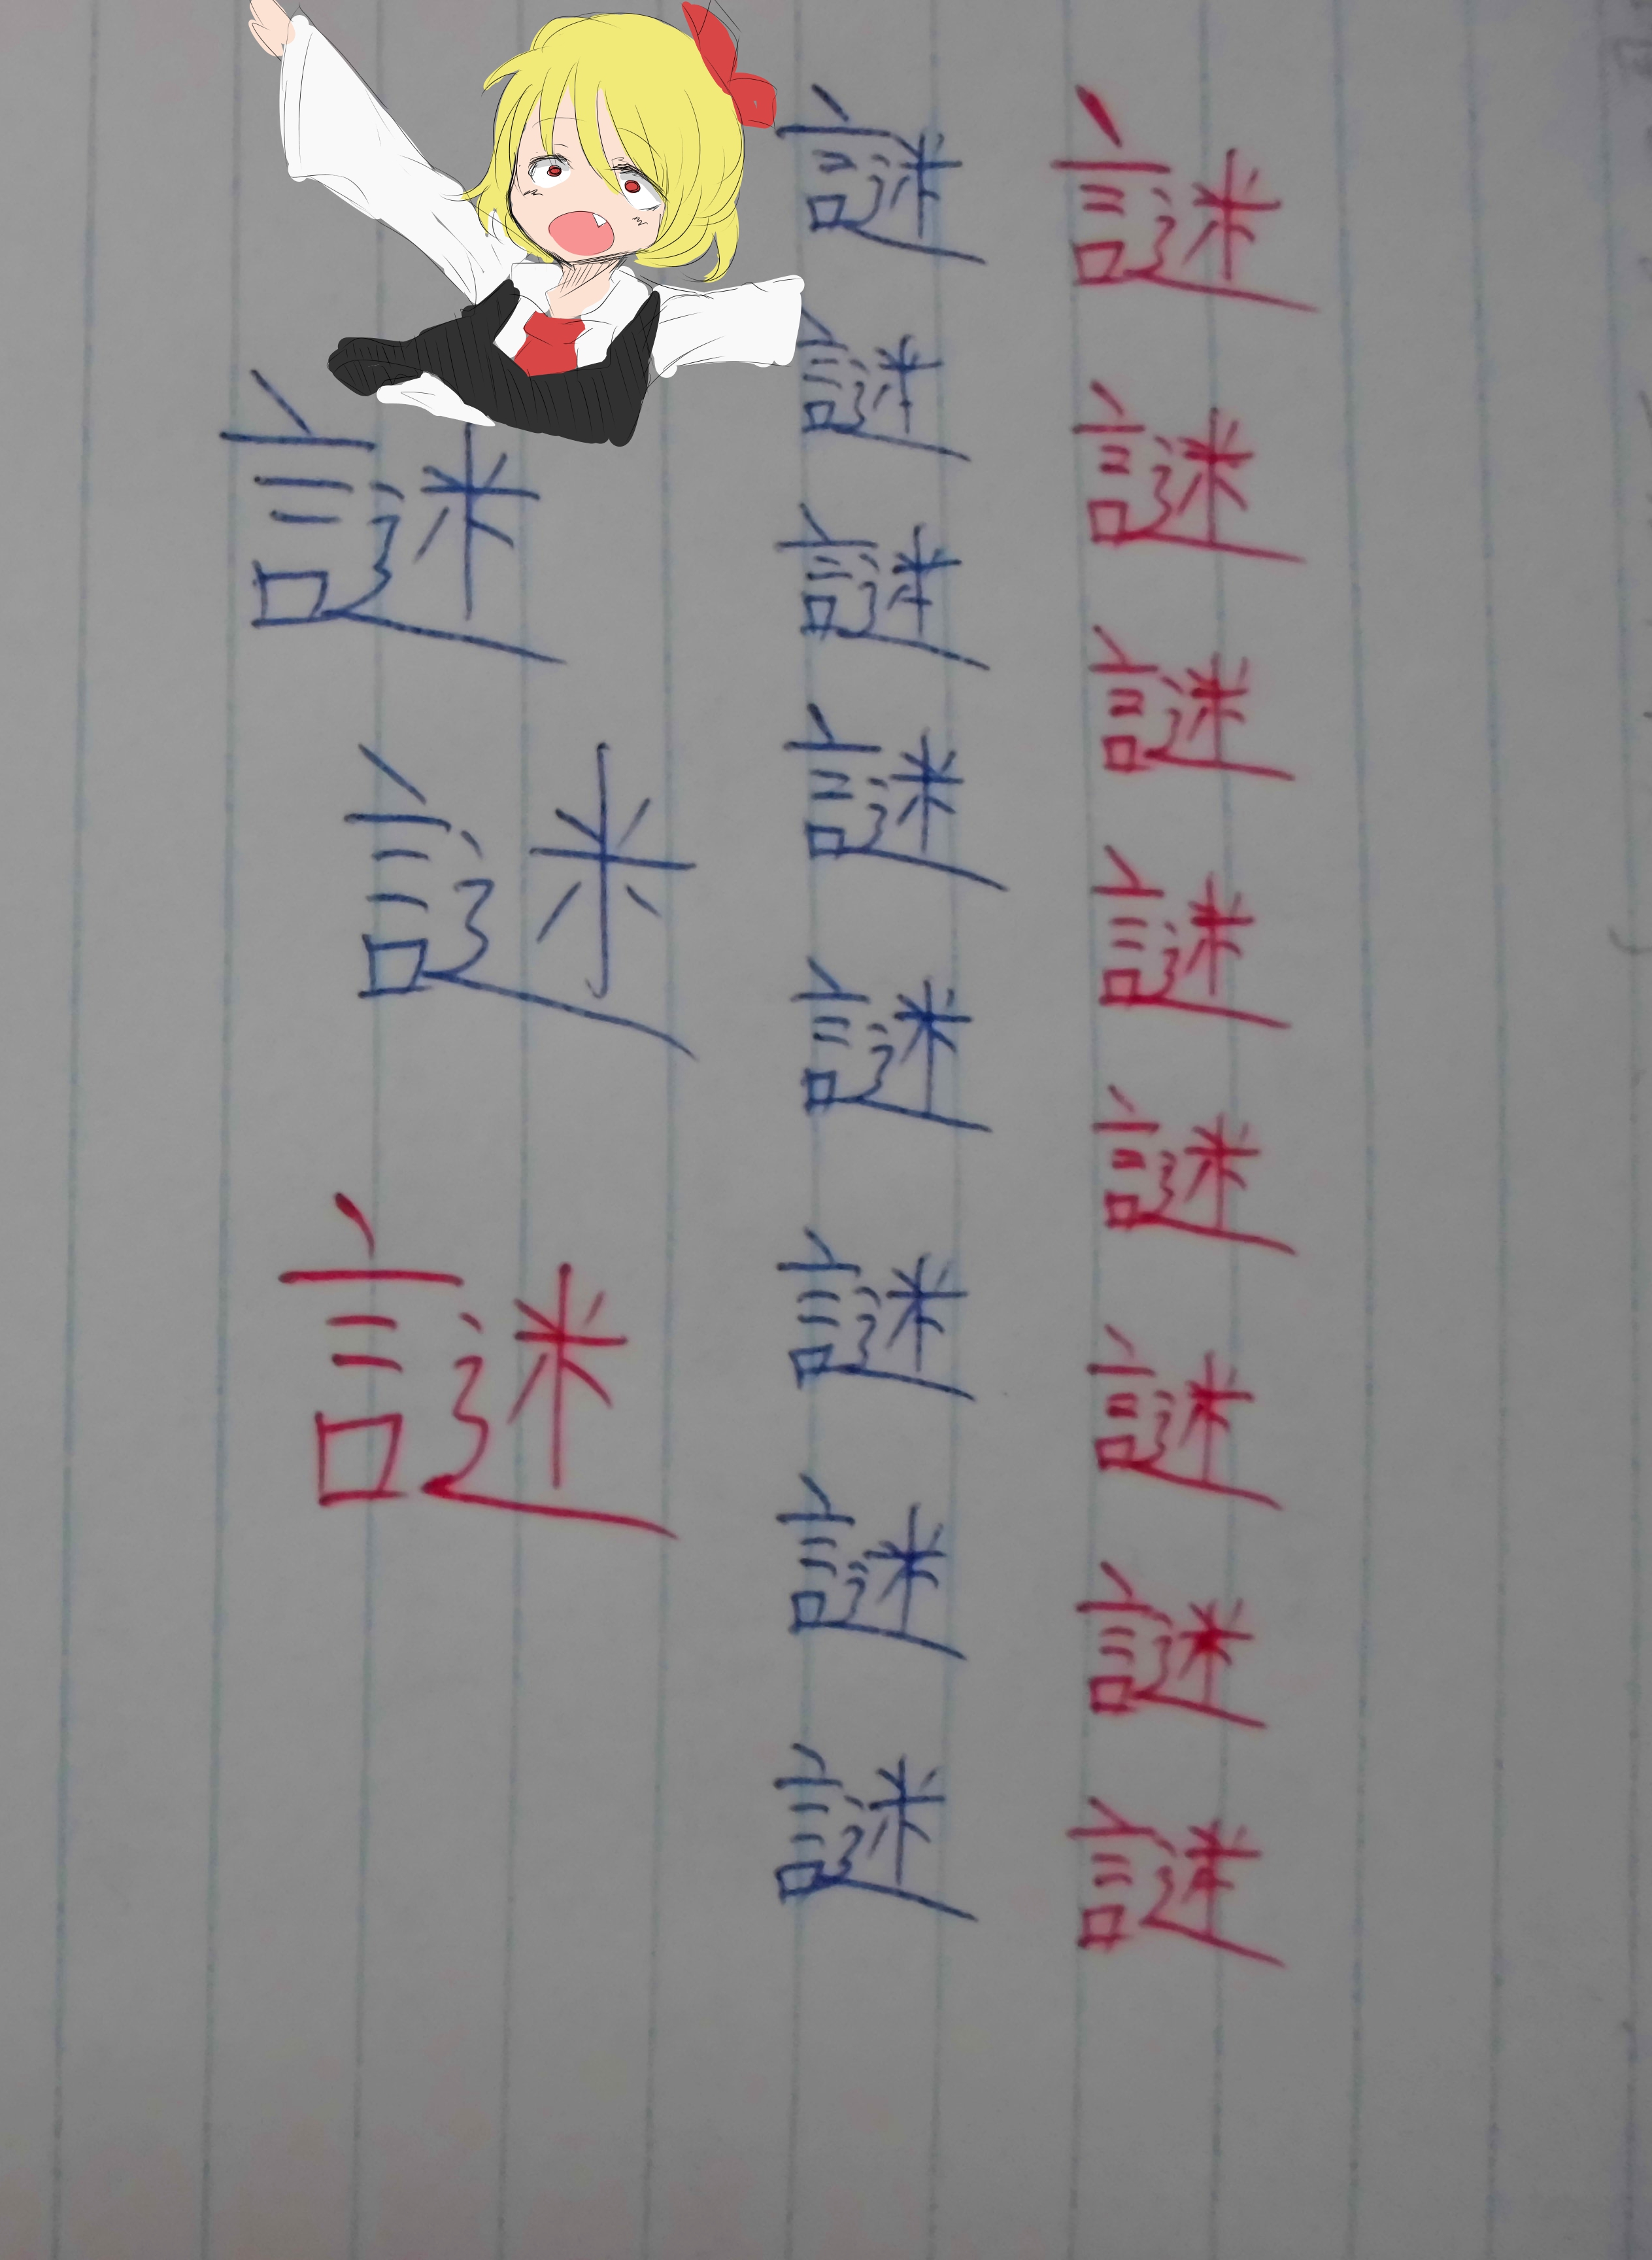 謎謎謎謎謎謎謎謎
謎謎謎謎謎謎謎謎
謎謎謎